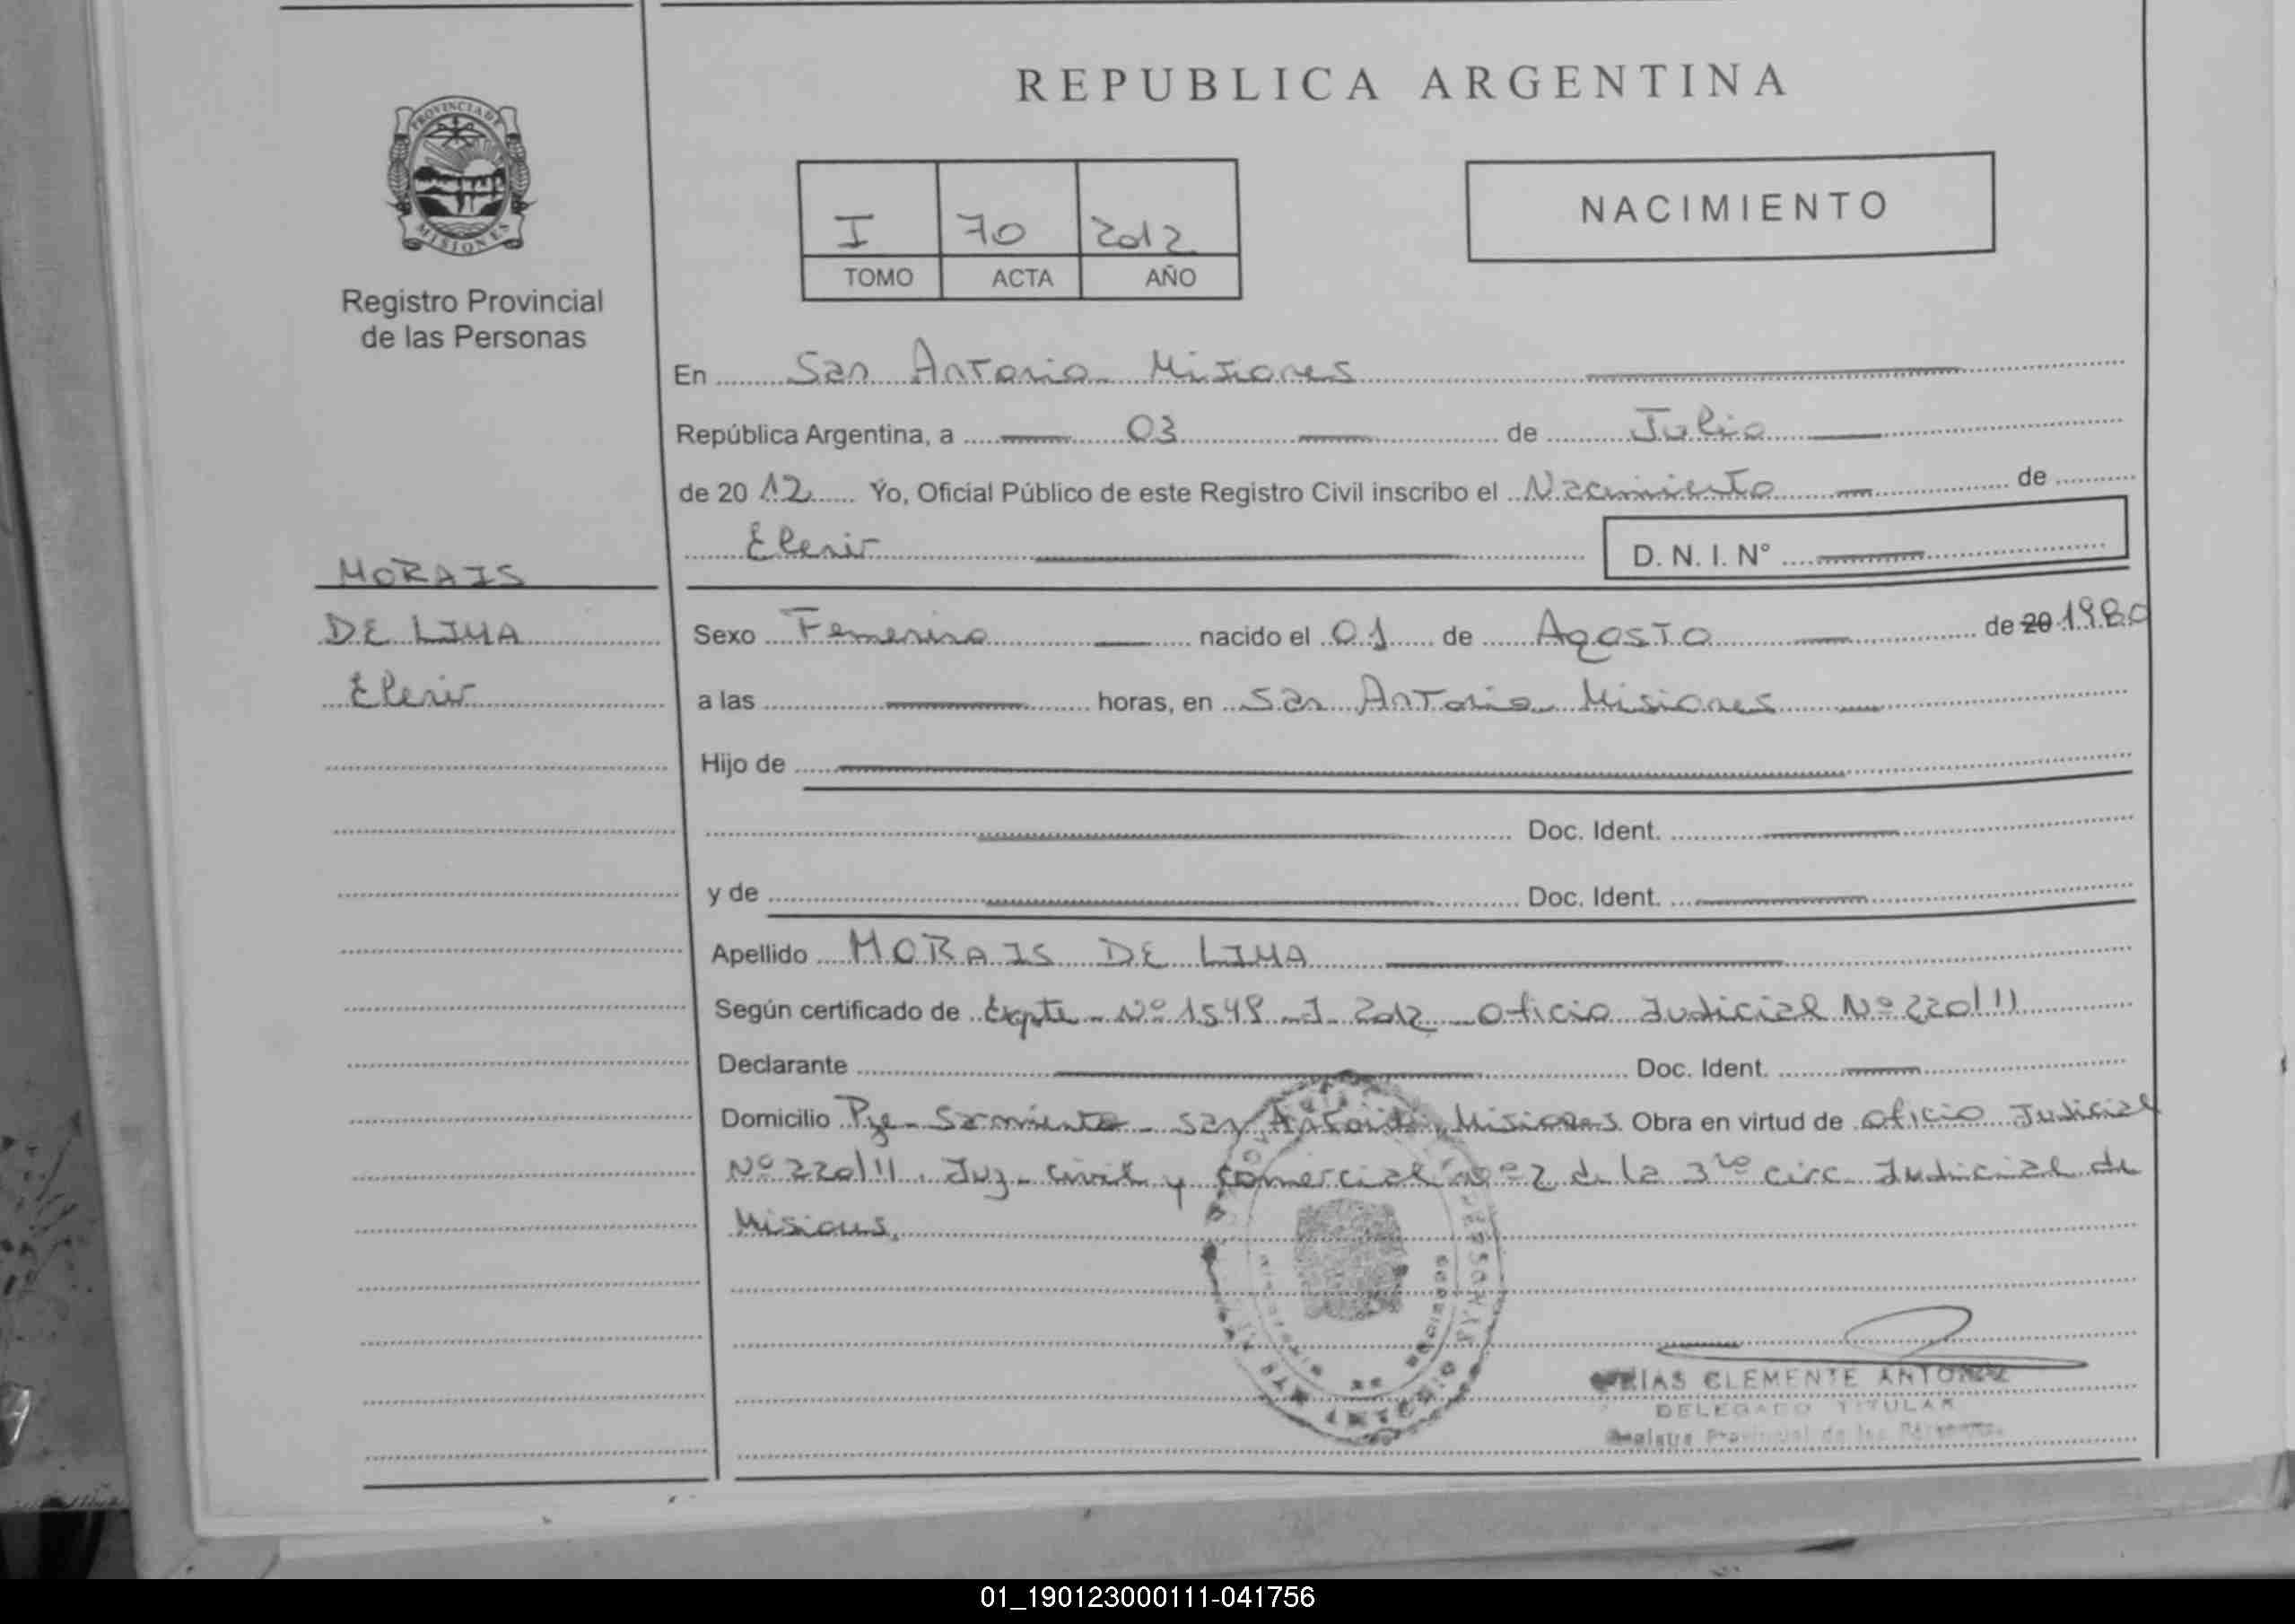 REPUBLICA ARGENTINA
PROVINCIA DE
MISIONES
Registro Provincial
de las Personas
I 70 2012
TOMO ACTA AÑO
NACIMIENTO
En San Antonio Misiones
República Argentina, a 03 de Julio
de 20 12 Yo, Oficial Público de este Registro Civil inscribo el Nacimiento de
Elenir D. N. I. N°
MORAIS
DE LIMA
Elenir
Sexo Femenino nacido el 01 de Agosto de 20 1980
a las horas, en San Antonio Misiones
Hijo de
Doc. Ident.
y de Doc. Ident.
Apellido MORAIS DE LIMA
Según certificado de Expte - Nº 1548 - J - 2012 - Oficio Judicial Nº 220/11
Declarante Doc. Ident.
Domicilio Pje - Sarmiento - San Antonio, Misiones Obra en virtud de Oficio Judicial
Nº 220/11. Juz - Civil y Comercial nº 2 de la 3 circ. Judicial de
Misiones.
PERSONAS
CLEMENTE
DELEGADO TITULAR
Registro Provincial de las Personas
01_190123000111-041756